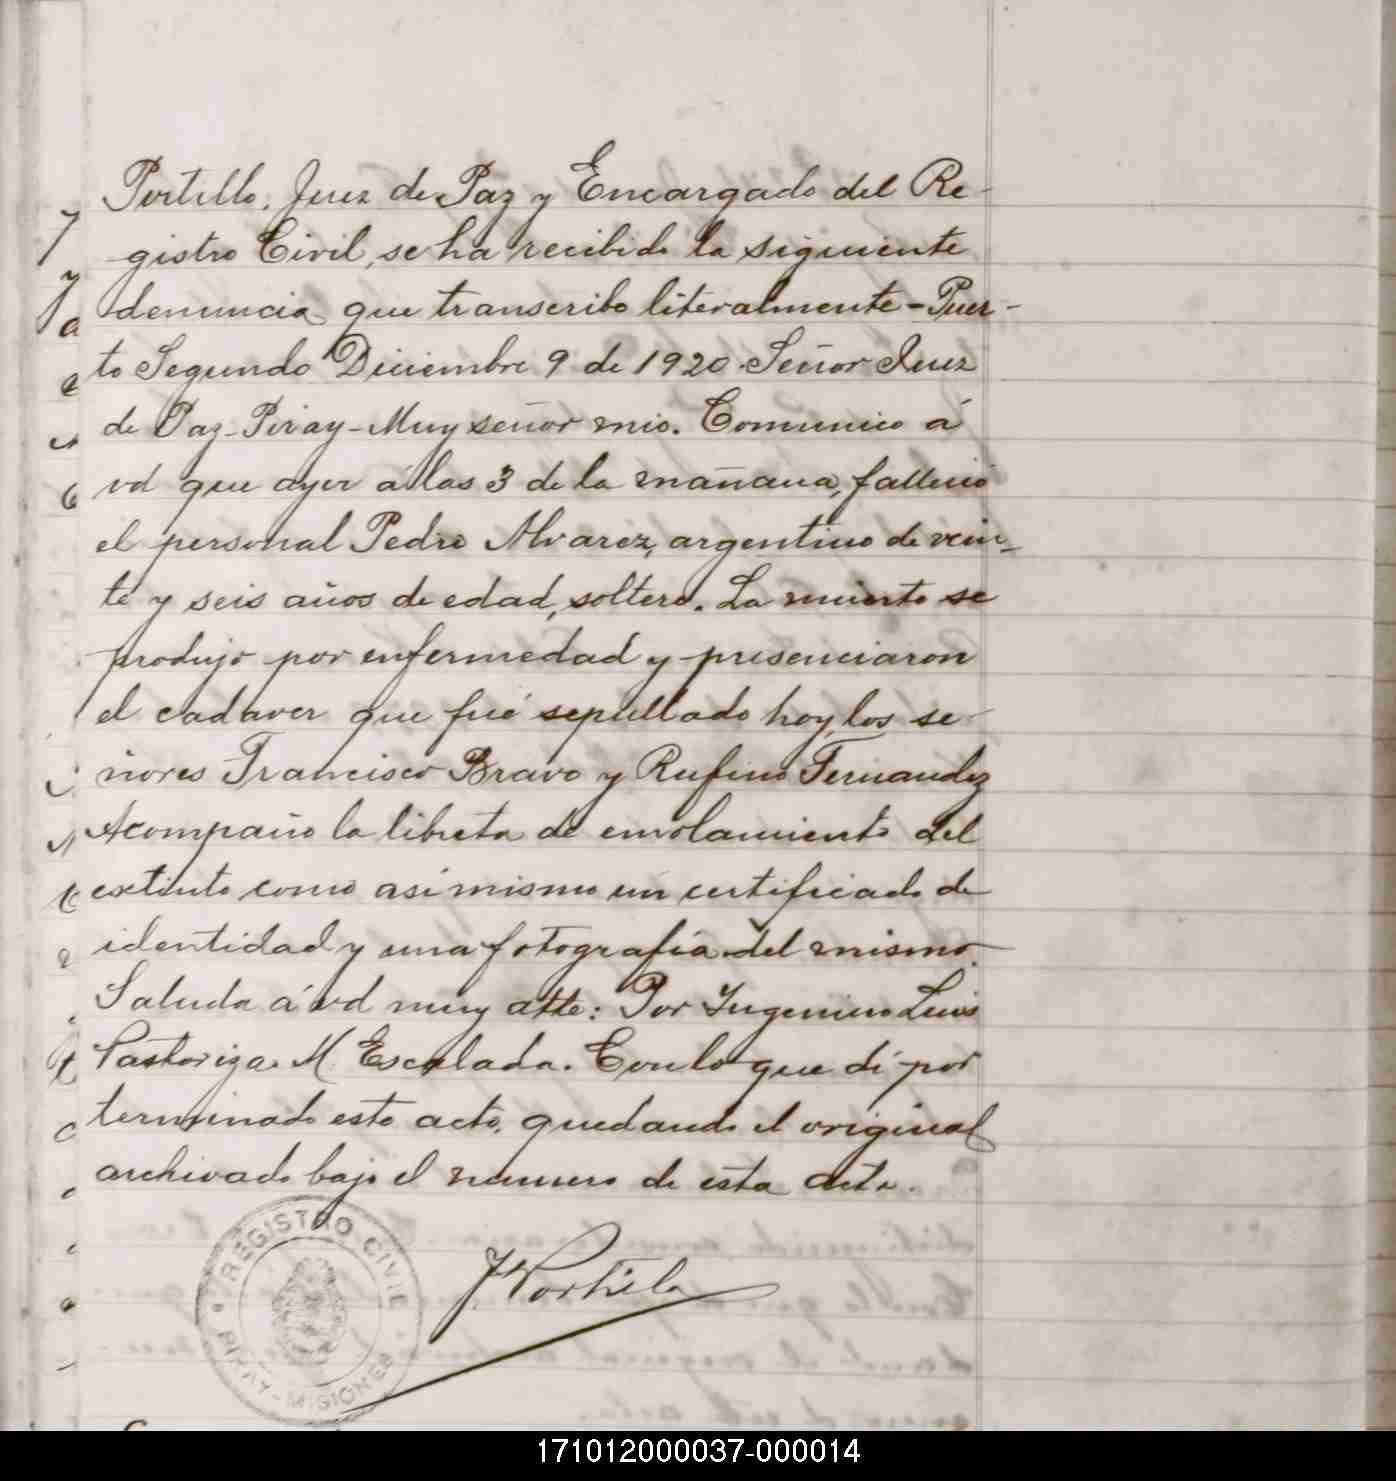 Portillo, Juez de Paz y Encargado del Re-
gistro Civil, se ha recibido la siguiente
denuncia que transcribo literalmente - Puer-
to Segundo Diciembre 9 de 1920. Señor Juez
de Paz - Piray - Muy señor mio. Comunico á
vd que ayer á las 3 de la mañana, falleció
el personal Pedro Alvarez, argentino de vein-
te y seis años de edad, soltero. La muerte se
produjo por enfermedad y presenciaron
el cadaver que fué sepultado hoy, los se-
ñores Francisco Bravo y Rufino Fernandez
Acompaño la libreta de enrolamiento del
extinto como asi mismo un certificado de
identidad y una fotografía del mismo.
Saluda á vd muy atte: Por Luis
Pastoriza. M. Escalada. Con lo que dí por
terminado este acto, quedando el original
archivado bajo el numero de esta acta.
REGISTRO CIVIL
PIRAY - MISIONES
J. Portillo
171012000037-000014